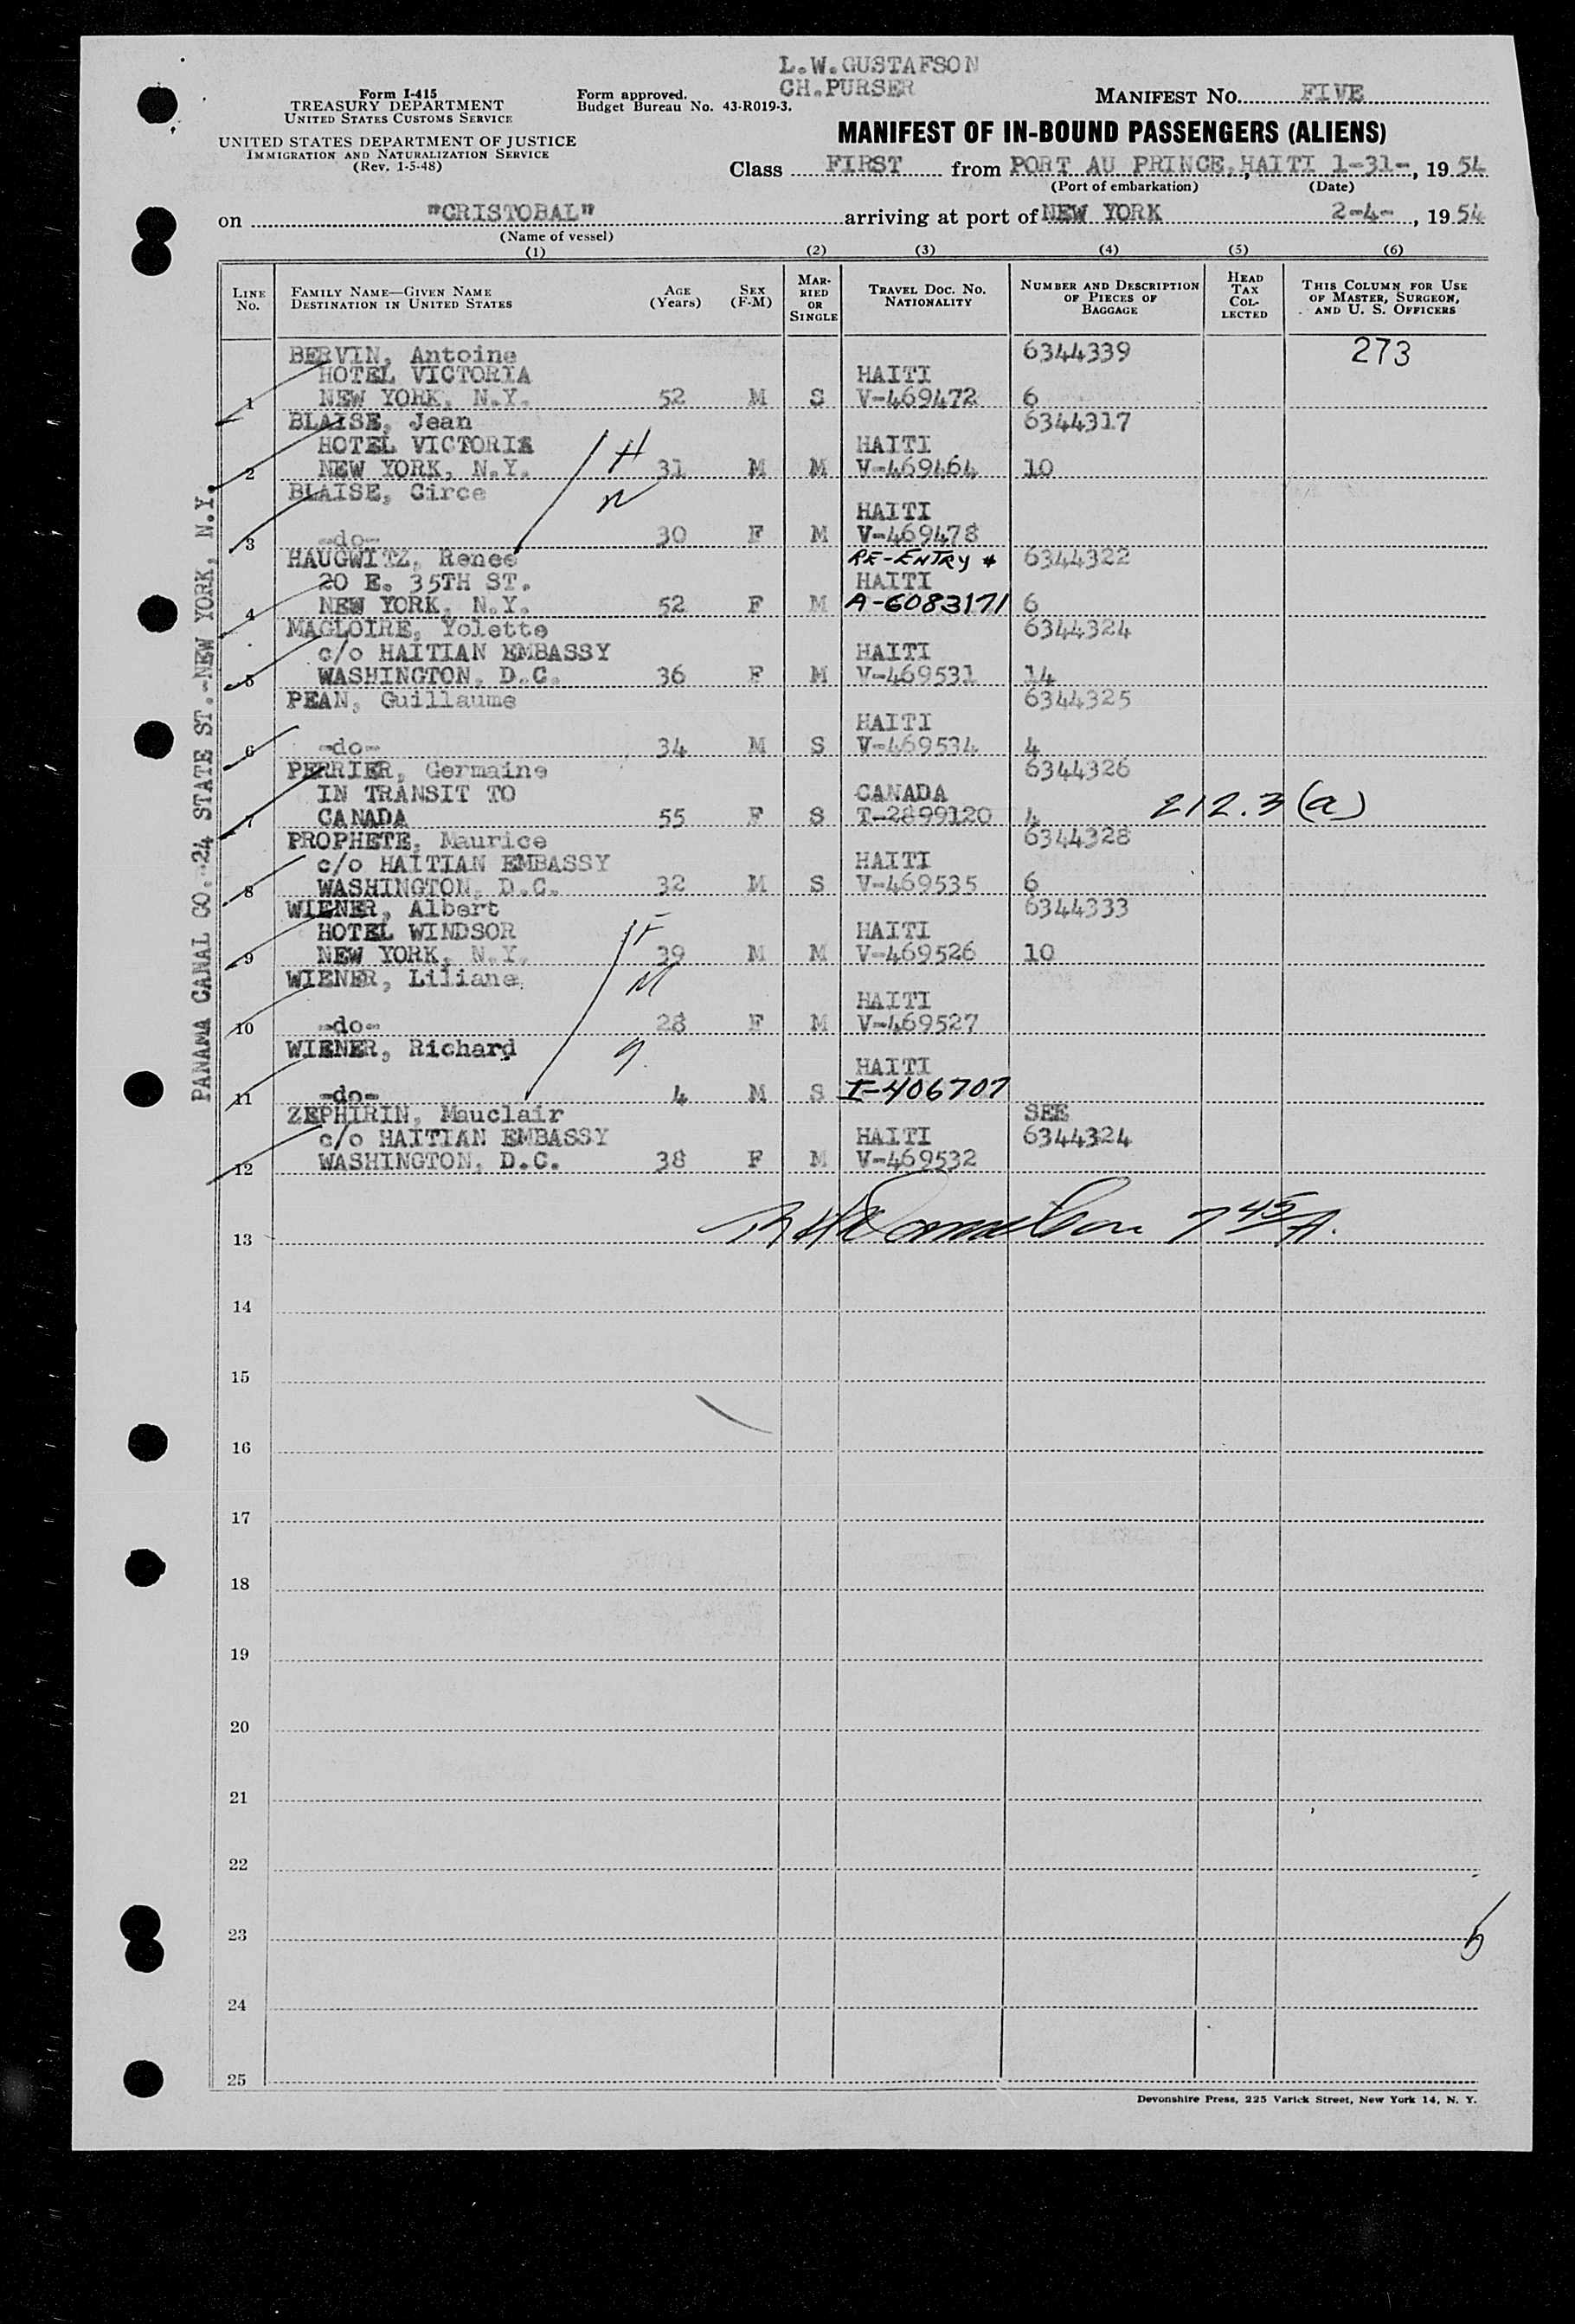 L.W.GUSTAFSON
CH.PURSER
Form I-415
TREASURY DEPARTMENT
UNITED STATES CUSTOMS SERVICE
UNITED STATES DEPARTMENT OF JUSTICE
IMMIGRATION AND NATURALIZATION SERVICE
(Rev. 1-5-48)
Form approved.
Budget Bureau No. 43-R019-3.
MANIFEST NO. FIVE
MANIFEST OF IN-BOUND PASSENGERS (ALIENS)
Class FIRST from PORT AU PRINCE, HAITI 1-31-, 1954
(Port of embarkation) (Date)
on "CRISTOBAL" arriving at port of NEW YORK 2-4-, 1954
(Name of vessel)
(1) (2) (3) (4) (5) (6)
LINE NO. FAMILY NAME—GIVEN NAME DESTINATION IN UNITED STATES AGE (Years) SEX (F-M) MARRIED OR SINGLE TRAVEL DOC. NO. NATIONALITY NUMBER AND DESCRIPTION OF PIECES OF BAGGAGE HEAD TAX COLLECTED THIS COLUMN FOR USE OF MASTER, SURGEON, AND U. S. OFFICERS
BERVIN, Antoine 6344339 273
HOTEL VICTORIA HAITI
1 NEW YORK, N.Y. 52 M S V-469472 6
BLAISE, Jean 6344317
HOTEL VICTORIA H HAITI
2 NEW YORK, N.Y. 31 M M V-469464 10
BLAISE, Circe
HAITI
3 -do- 30 F M V-469478
HAUGWITZ, Renee RE-ENTRY 6344322
20 E. 35TH ST. HAITI
4 NEW YORK, N.Y. 52 F M A-6083171 6
MAGLOIRE, Yolette 6344324
c/o HAITIAN EMBASSY HAITI
5 WASHINGTON, D.C. 36 F M V-469531 14
PEAN, Guillaume 6344325
HAITI
6 -do- 34 M S V-469534 4
PERRIER, Germaine 6344326
IN TRANSIT TO CANADA
7 CANADA 55 F S T-2899120 4 212.3 (a)
PROPHETE, Maurice 6344328
c/o HAITIAN EMBASSY HAITI
8 WASHINGTON, D.C. 32 M S V-469535 6
WIENER, Albert 6344333
HOTEL WINDSOR F HAITI
9 NEW YORK, N.Y. 39 M M V-469526 10
WIENER, Liliane M
HAITI
10 -do- 28 F M V-469527
WIENER, Richard
HAITI
11 -do- 4 M S I-406707
ZEPHIRIN, Mauclair SEE
c/o HAITIAN EMBASSY HAITI 6344324
12 WASHINGTON, D.C. 38 F M V-469532
13 7 45 A.
14
15
16
17
18
19
20
21
22
23
24
25
PANAMA CANAL CO.-24 STATE ST.-NEW YORK, N.Y.
Devonshire Press, 225 Varick Street, New York 14, N. Y.